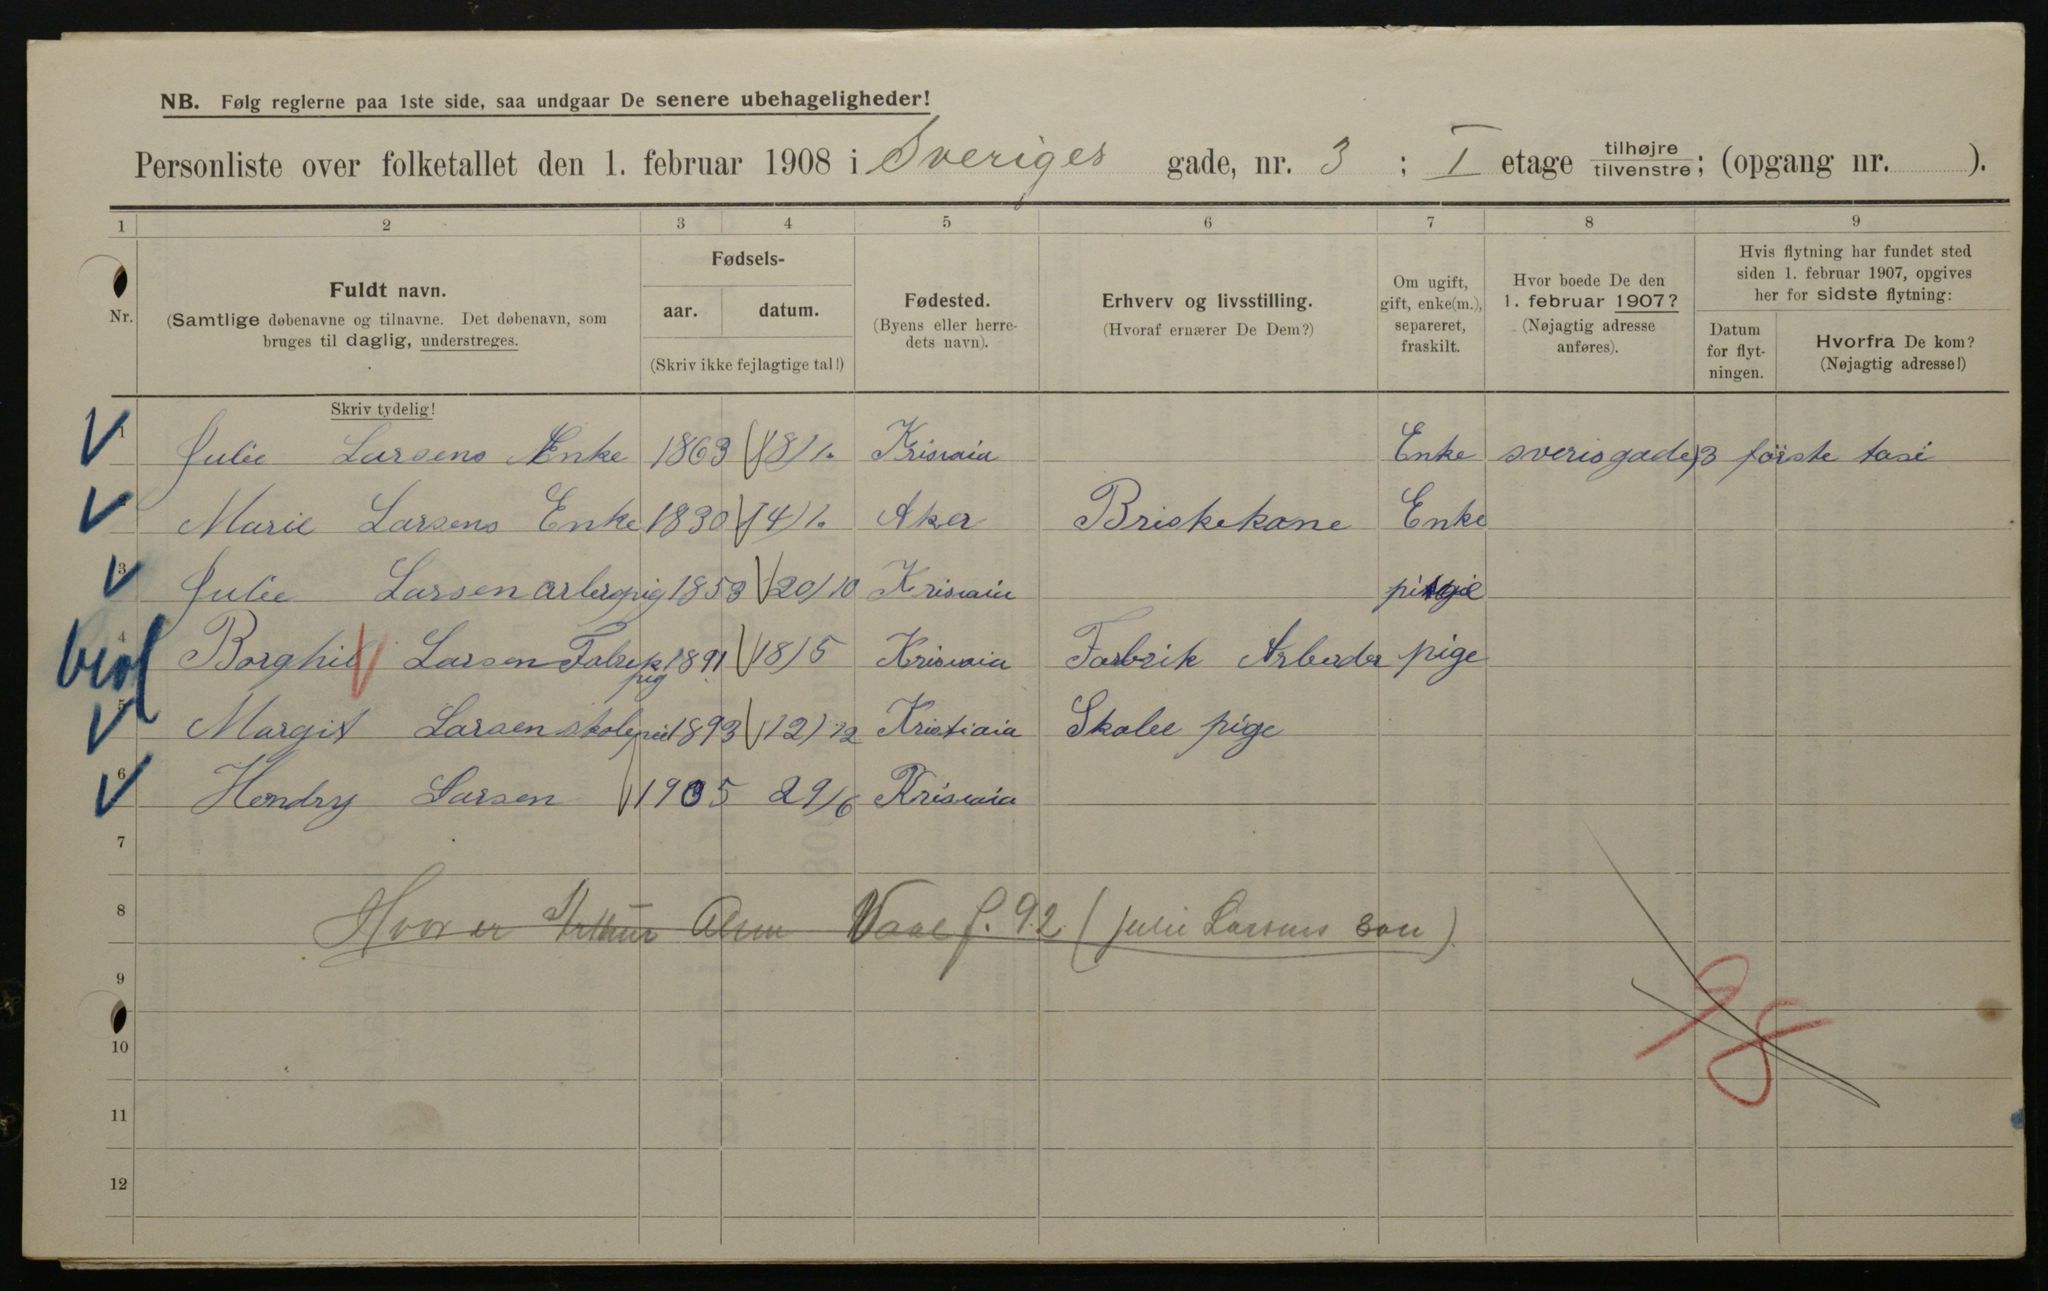 NB. Følg reglerne paa 1ste side, saa undgaar De senere ubehageligheder!
Personliste over folketallet den 1. februar 1908 i Sveriges gade, nr. 3 ; I etage tilhøjre / tilvenstre; (opgang nr. ).
1 2 3 4 5 6 7 8 9
Nr.
Fuldt navn.
(Samtlige døbenavne og tilnavne. Det døbenavn, som
bruges til daglig, understreges.
Fødsels-
aar. datum.
(Skriv ikke fejlagtige tal!)
Fødested.
(Byens eller herre-
dets navn).
Erhverv og livsstilling.
(Hvoraf ernærer De Dem?)
Om ugift,
gift, enke(m.),
separeret,
fraskilt.
Hvor boede De den
1. februar 1907?
(Nøjagtig adresse
anføres).
Hvis flytning har fundet sted
siden 1. februar 1907, opgives
her for sidste flytning:
Datum
for flyt-
ningen.
Hvorfra De kom?
(Nøjagtig adresse!)
Skriv tydelig!
1 Julie Larsens Enke 1863 18/1. Krisiaia Enke sverisgade 3 förste tasi
Marie Larsens Enke 1830 14/1. Aker Briskekone Enke
3 Julie Larsen arberpig 1853 20/10 Krisiaia pige
4 Borghil Larsen Fabrik pig 1891 18/5 Krisiaia Farbrik Arberder pige
5 Margit Larsen skolepie 1893 12/12 Kristiaia Skolee pige
6 Hendry Larsen 1905 29/6 Krisiaia
7
8 Hvor er Arthur Vaae f. 92 (Julie Larsens søn)
9
98
10
11
12